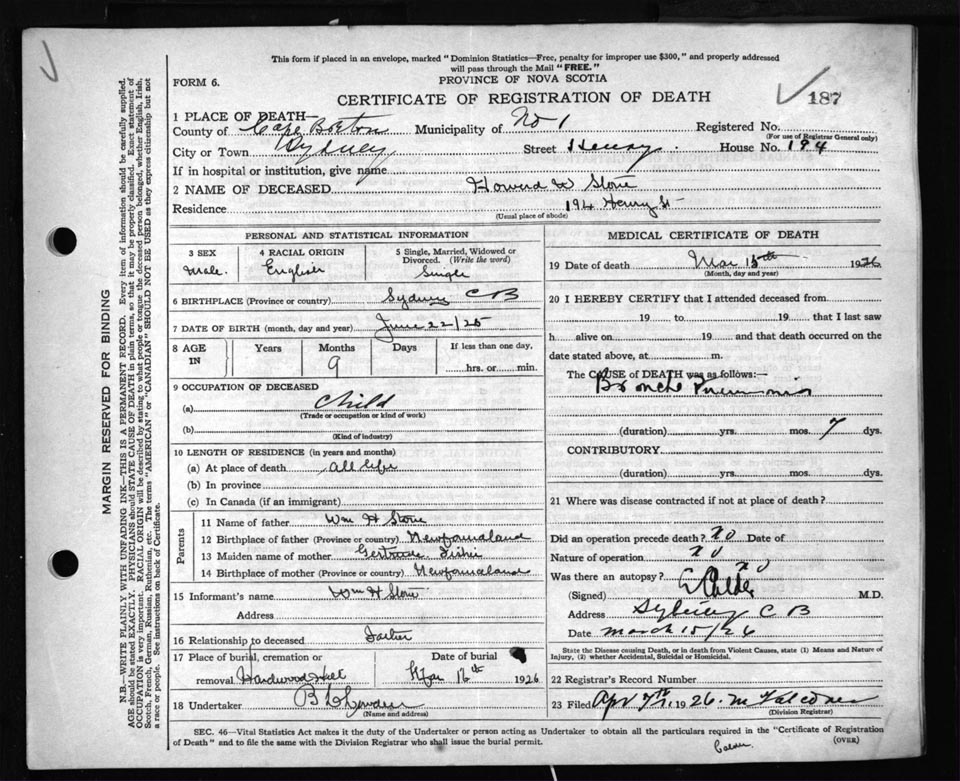 This form if placed in an envelope, marked "Dominion Statistics—Free, penalty for improper use $300," and properly addressed
will pass through the Mail "FREE."
FORM 6.
PROVINCE OF NOVA SCOTIA
CERTIFICATE OF REGISTRATION OF DEATH
187
1 PLACE OF DEATH—
County of Cape Breton Municipality of No 1 Registered No.
(For use of Registrar General only)
City or Town Sydney Street Henry House No. 194
If in hospital or institution, give name
2 NAME OF DECEASED Howard W Stone
Residence 194 Henry St
(Usual place of abode)
PERSONAL AND STATISTICAL INFORMATION
3 SEX Male
4 RACIAL ORIGIN English
5 Single, Married, Widowed or Divorced. (Write the word) Single
6 BIRTHPLACE (Province or country) Sydney C B
7 DATE OF BIRTH (month, day and year) June 22/25
8 AGE IN Years Months 9 Days If less than one day, hrs. or min.
9 OCCUPATION OF DECEASED
(a) Child
(Trade or occupation or kind of work)
(b)
(Kind of industry)
10 LENGTH OF RESIDENCE (in years and months)
(a) At place of death All life
(b) In province
(c) In Canada (if an immigrant)
Parents
11 Name of father Wm H Stone
12 Birthplace of father (Province or country) Newfoundland
13 Maiden name of mother Gertrude
14 Birthplace of mother (Province or country) Newfoundland
15 Informant's name Wm H Stone
Address
16 Relationship to deceased Father
17 Place of burial, cremation or removal Hardwood Hill
Date of burial Mar 16th 1926
18 Undertaker B
(Name and address)
MEDICAL CERTIFICATE OF DEATH
19 Date of death Mar 15th 1926
(Month, day and year)
20 I HEREBY CERTIFY that I attended deceased from
19 to 19 that I last saw
h alive on 19 and that death occurred on the
date stated above, at m.
The CAUSE OF DEATH was as follows:—
Broncho Pneumonia
(duration) yrs. mos. 7 dys.
CONTRIBUTORY
(duration) yrs. mos. dys.
21 Where was disease contracted if not at place of death?
Did an operation precede death? No Date of
Nature of operation No
Was there an autopsy? No
(Signed) Calder M.D.
Address Sydney C B
Date March 15/26
State the Disease causing Death, or in death from Violent Causes, state (1) Means and Nature of
Injury, (2) whether Accidental, Suicidal or Homicidal.
22 Registrar's Record Number
23 Filed Apr 7th 1926
(Division Registrar)
SEC. 46—Vital Statistics Act makes it the duty of the Undertaker or person acting as Undertaker to obtain all the particulars required in the "Certificate of Registration
of Death" and to file the same with the Division Registrar who shall issue the burial permit.
(OVER)
Calder
MARGIN RESERVED FOR BINDING
N.B.—WRITE PLAINLY WITH UNFADING INK—THIS IS A PERMANENT RECORD. Every item of information should be carefully supplied.
AGE should be stated EXACTLY. PHYSICIANS should STATE CAUSE OF DEATH in plain terms, so that it may be properly classified. Exact statement of
OCCUPATION is very important. RACIAL ORIGIN will be described by stating to what people or tongue the deceased person belonged, whether English, Irish,
Scotch, French, German, Russian, Ruthenian, etc. The terms "AMERICAN" or "CANADIAN" SHOULD NOT BE USED as they express citizenship but not
a race or people. See instructions on back of Certificate.